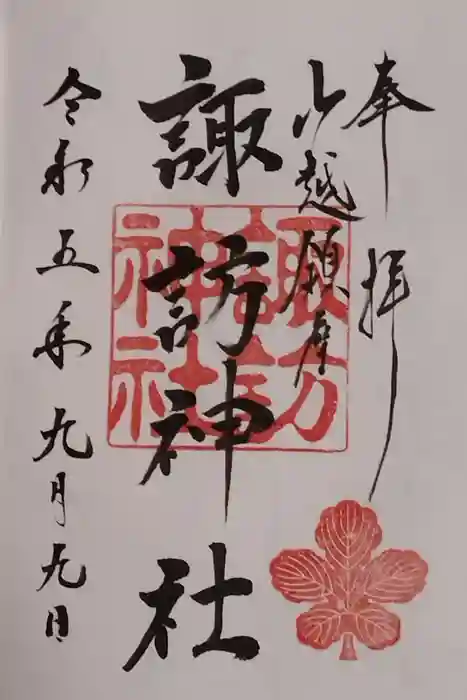 奉拝
越鎮座
諏訪神社
諏訪
神社
令和五年九月九日